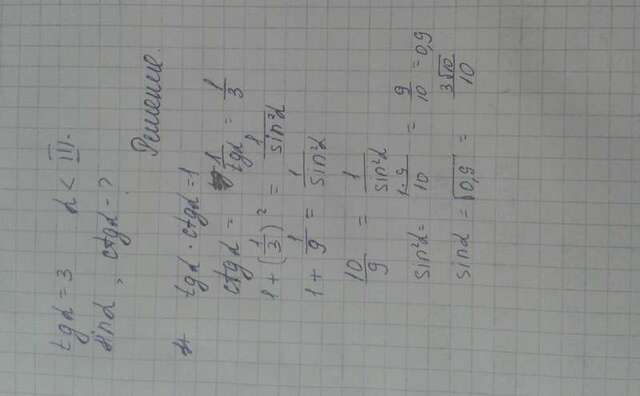 tgα = 3 α < III.
sinα, ctgα - ?
Решение.
tgα · ctgα = 1
ctgα = 1/tgα = 1/3
1 + (1/3)² = 1/sin²α
1 + 1/9 = 1/sin²α
10/9 = 1/sin²α
sin²α = 1·9/10 = 9/10 = 0,9
sinα = √0,9 = 3√10/10